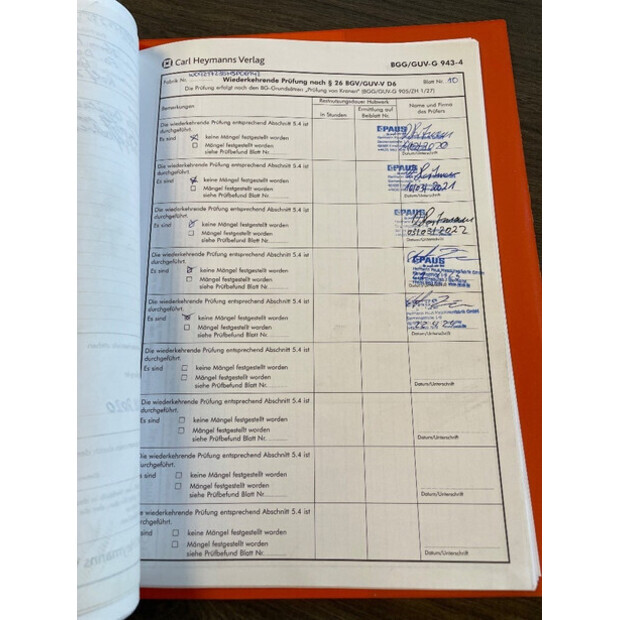 Carl Heymanns Verlag
BGG/GUV-G 943-4
Fabrik Nr.
Wiederkehrende Prüfung nach § 26 BGV/GUV-V D6
Blatt Nr. 10
Die Prüfung erfolgt nach den BG-Grundsätzen „Prüfung von Kranen" (BGG/GUV-G 905/ZH 1/27)
Bemerkungen
Restnutzungsdauer Hubwerk
in Stunden
Ermittlung auf
Beiblatt Nr.
Name und Firma
des Prüfers
Die wiederkehrende Prüfung entsprechend Abschnitt 5.4 ist
durchgeführt.
Es sind keine Mängel festgestellt worden
Mängel festgestellt worden
siehe Prüfbefund Blatt Nr.
E-PAUS
2020
Datum/Unterschrift
Die wiederkehrende Prüfung entsprechend Abschnitt 5.4 ist
durchgeführt.
Es sind keine Mängel festgestellt worden
Mängel festgestellt worden
siehe Prüfbefund Blatt Nr.
E-PAUS
10.03.2021
Datum/Unterschrift
Die wiederkehrende Prüfung entsprechend Abschnitt 5.4 ist
durchgeführt.
Es sind keine Mängel festgestellt worden
Mängel festgestellt worden
siehe Prüfbefund Blatt Nr.
E-PAUS
03.03.2022
Datum/Unterschrift
Die wiederkehrende Prüfung entsprechend Abschnitt 5.4 ist
durchgeführt.
Es sind keine Mängel festgestellt worden
Mängel festgestellt worden
siehe Prüfbefund Blatt Nr.
E-PAUS
Hermann Paus Maschinenfabrik GmbH
Datum/Unterschrift
Die wiederkehrende Prüfung entsprechend Abschnitt 5.4 ist
durchgeführt.
Es sind keine Mängel festgestellt worden
Mängel festgestellt worden
siehe Prüfbefund Blatt Nr.
Hermann Paus Maschinenfabrik GmbH
Die wiederkehrende Prüfung entsprechend Abschnitt 5.4 ist
durchgeführt.
Es sind keine Mängel festgestellt worden
Mängel festgestellt worden
siehe Prüfbefund Blatt Nr.
Datum/Unterschrift
Die wiederkehrende Prüfung entsprechend Abschnitt 5.4 ist
durchgeführt.
Es sind keine Mängel festgestellt worden
Mängel festgestellt worden
siehe Prüfbefund Blatt Nr.
Datum/Unterschrift
Die wiederkehrende Prüfung entsprechend Abschnitt 5.4 ist
durchgeführt.
sind keine Mängel festgestellt worden
Mängel festgestellt worden
siehe Prüfbefund Blatt Nr.
Datum/Unterschrift
wiederkehrende Prüfung entsprechend Abschnitt 5.4 ist
durchgeführt.
sind keine Mängel festgestellt worden
Mängel festgestellt worden
siehe Prüfbefund Blatt Nr.
Datum/Unterschrift